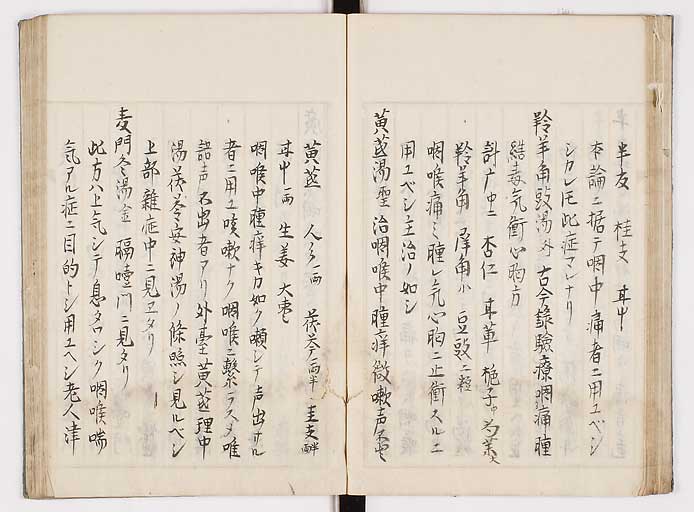 半夏 桂支 耳中
本論ニ据テ咽中痛者ニ用ユベシ
シカレ𪜈此症マレナリ
羚羊角豉湯外 古今録驗療咽痛腫
結毒氣衝心胸方
羚羊角 犀角小 豆豉二
杏仁 梔子
咽喉痛ミ腫レ気心胸ニ上衝スルニ
用ユベシ主治ノ如シ
黄芪湯聖 治咽喉中腫痒微嗽声
黄芪 人 一両 茯苓一両半 圭支半両
耳中一両 生姜 大枣
咽喉中腫痒キカ如ク頻シテ声出サル
者ニ用ユ咳嗽ナク咽喉ニ繋ラス唯
語声不出者アリ外臺黄芪理中
湯茯苓安神湯ノ條照シ見ルベシ
上部雜症中ニ見ヱタリ
麦門冬湯金 膈噎門ニ見タリ
此方ハ上気シテ息タワシク咽喉喘
気アル症ニ目的トシ用ユベシ老人津